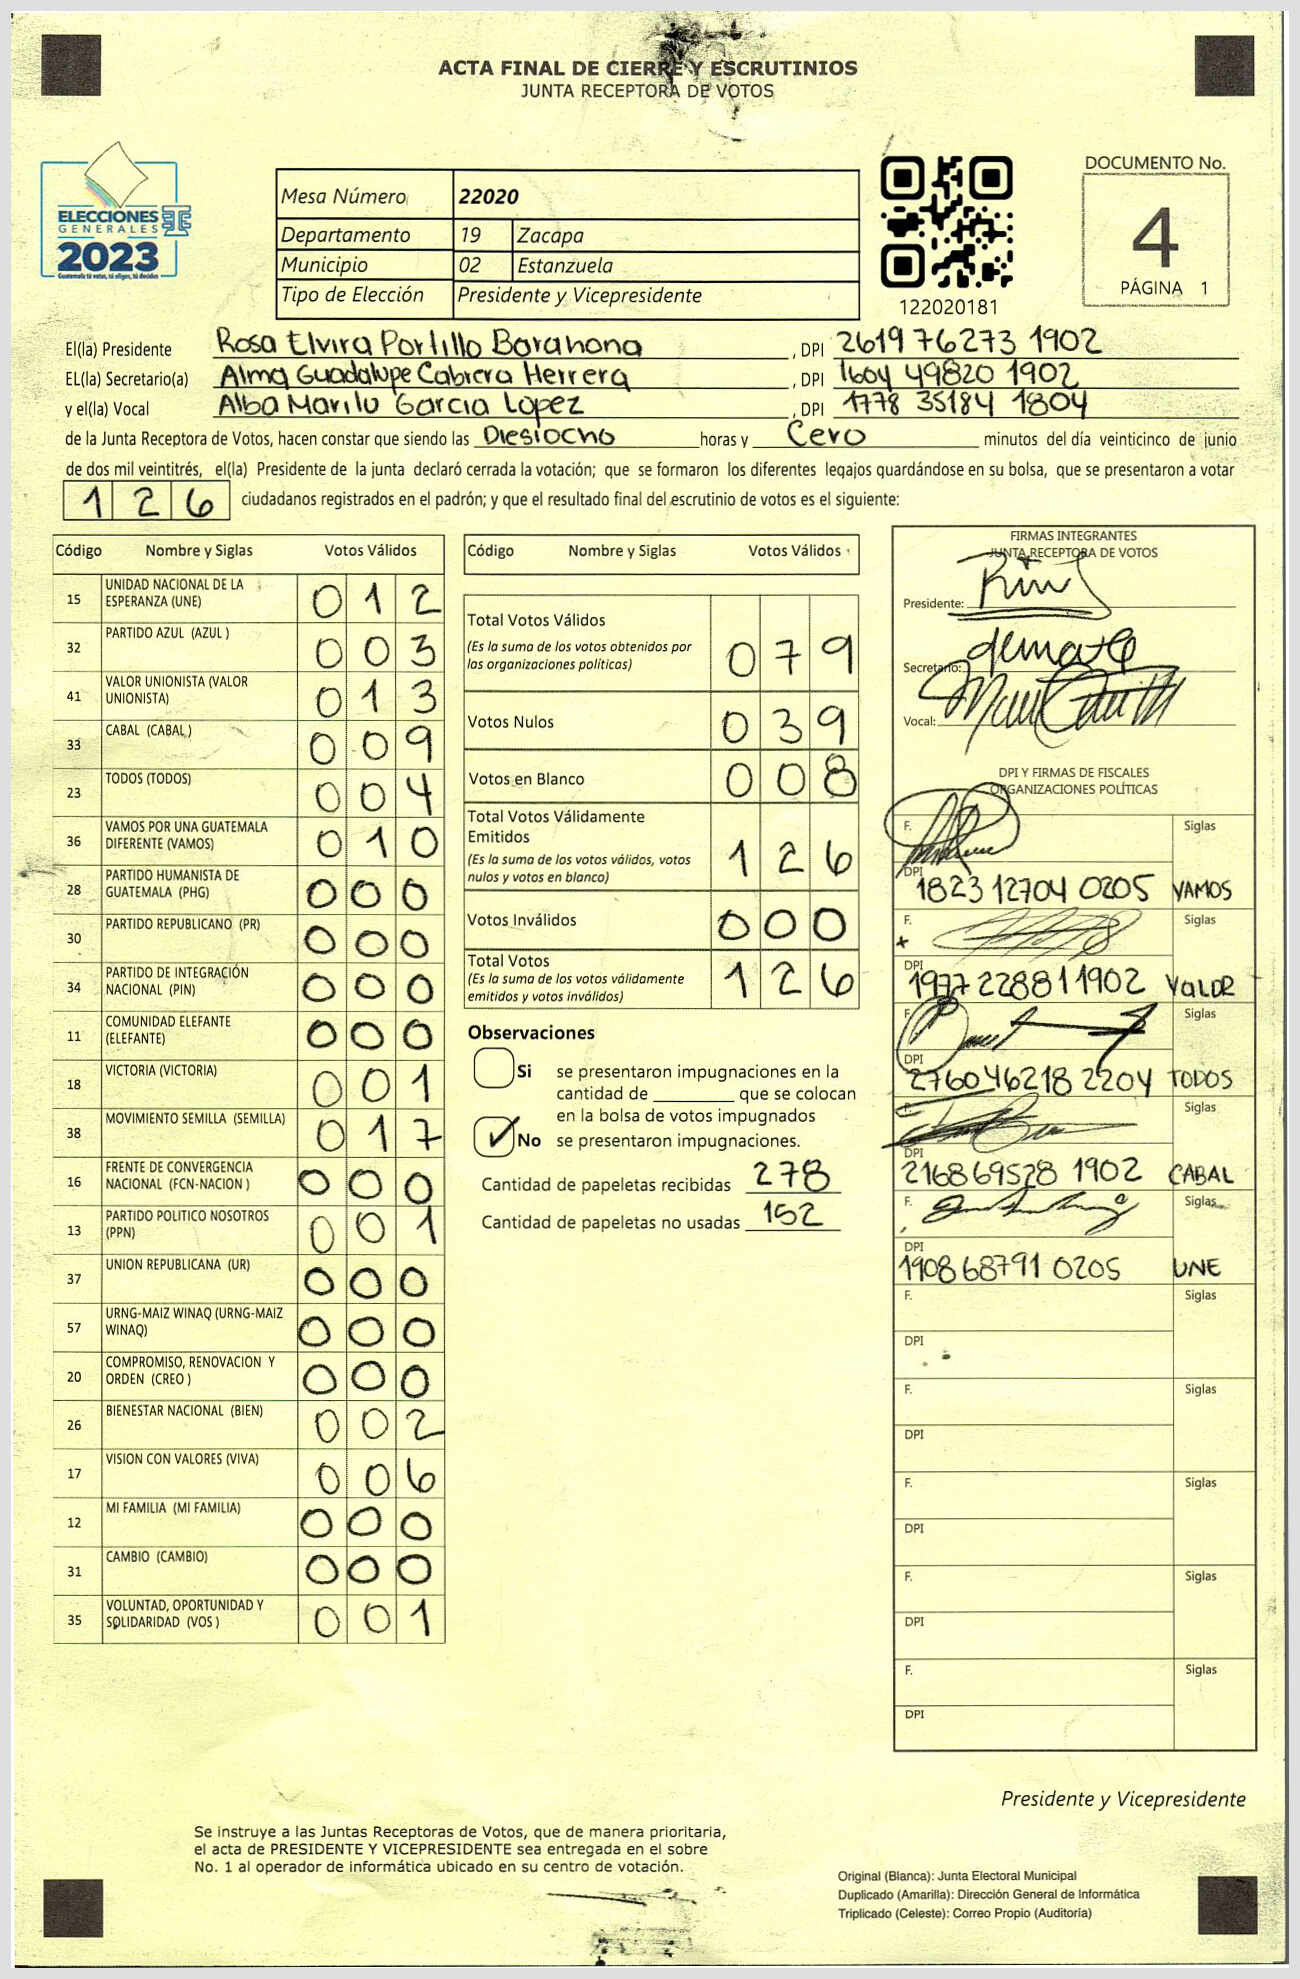 ACTA FINAL DE CIERRE Y ESCRUTINIOS
JUNTA RECEPTORA DE VOTOS
ELECCIONES
GENERALES
2023
Guatemala tú votas, tú eliges, tú decides
Mesa Número 22020
Departamento 19 Zacapa
Municipio 02 Estanzuela
Tipo de Elección Presidente y Vicepresidente
122020181
DOCUMENTO No.
4
PÁGINA 1
El(la) Presidente Rosa Elvira Portillo Barahona, DPI 2619 76273 1902
EL(la) Secretario(a) Alma Guadalupe Cabrera Herrera, DPI 1604 49820 1902
y el(la) Vocal Alba Marilu Garcia Lopez, DPI 1778 35184 1804
de la Junta Receptora de Votos, hacen constar que siendo las Diesiocho horas y Cero minutos del día veinticinco de junio
de dos mil veintitrés, el(la) Presidente de la junta declaró cerrada la votación; que se formaron los diferentes legajos guardándose en su bolsa, que se presentaron a votar
126 ciudadanos registrados en el padrón; y que el resultado final del escrutinio de votos es el siguiente:
Código Nombre y Siglas Votos Válidos
15 UNIDAD NACIONAL DE LA ESPERANZA (UNE) 012
32 PARTIDO AZUL (AZUL ) 003
41 VALOR UNIONISTA (VALOR UNIONISTA) 013
33 CABAL (CABAL ) 009
23 TODOS (TODOS) 004
36 VAMOS POR UNA GUATEMALA DIFERENTE (VAMOS) 010
28 PARTIDO HUMANISTA DE GUATEMALA (PHG) 000
30 PARTIDO REPUBLICANO (PR) 000
34 PARTIDO DE INTEGRACIÓN NACIONAL (PIN) 000
11 COMUNIDAD ELEFANTE (ELEFANTE) 000
18 VICTORIA (VICTORIA) 001
38 MOVIMIENTO SEMILLA (SEMILLA) 017
16 FRENTE DE CONVERGENCIA NACIONAL (FCN-NACION ) 000
13 PARTIDO POLITICO NOSOTROS (PPN) 001
37 UNION REPUBLICANA (UR) 000
57 URNG-MAIZ WINAQ (URNG-MAIZ WINAQ) 000
20 COMPROMISO, RENOVACION Y ORDEN (CREO ) 000
26 BIENESTAR NACIONAL (BIEN) 002
17 VISION CON VALORES (VIVA) 006
12 MI FAMILIA (MI FAMILIA) 000
31 CAMBIO (CAMBIO) 000
35 VOLUNTAD, OPORTUNIDAD Y SOLIDARIDAD (VOS ) 001
Código Nombre y Siglas Votos Válidos
Total Votos Válidos 079
(Es la suma de los votos obtenidos por
las organizaciones políticas)
Votos Nulos 039
Votos en Blanco 008
Total Votos Válidamente
Emitidos 126
(Es la suma de los votos válidos, votos
nulos y votos en blanco)
Votos Inválidos 000
Total Votos 126
(Es la suma de los votos válidamente
emitidos y votos inválidos)
Observaciones
Si se presentaron impugnaciones en la
cantidad de ________ que se colocan
en la bolsa de votos impugnados
No se presentaron impugnaciones.
Cantidad de papeletas recibidas 278
Cantidad de papeletas no usadas 152
FIRMAS INTEGRANTES
JUNTA RECEPTORA DE VOTOS
Presidente:
Secretario:
Vocal:
DPI Y FIRMAS DE FISCALES
ORGANIZACIONES POLÍTICAS
F. Siglas
DPI 1823 12704 0205 VAMOS
F. Siglas
DPI 1977 22881 1902 VALOR
F. Siglas
DPI 2760 46218 2204 TODOS
F. Siglas
DPI 2168 69528 1902 CABAL
F. Siglas
DPI 1908 68791 0205 UNE
F. Siglas
DPI
F. Siglas
DPI
F. Siglas
DPI
F. Siglas
DPI
F. Siglas
DPI
Presidente y Vicepresidente
Se instruye a las Juntas Receptoras de Votos, que de manera prioritaria,
el acta de PRESIDENTE Y VICEPRESIDENTE sea entregada en el sobre
No. 1 al operador de informática ubicado en su centro de votación.
Original (Blanca): Junta Electoral Municipal
Duplicado (Amarilla): Dirección General de Informática
Triplicado (Celeste): Correo Propio (Auditoría)